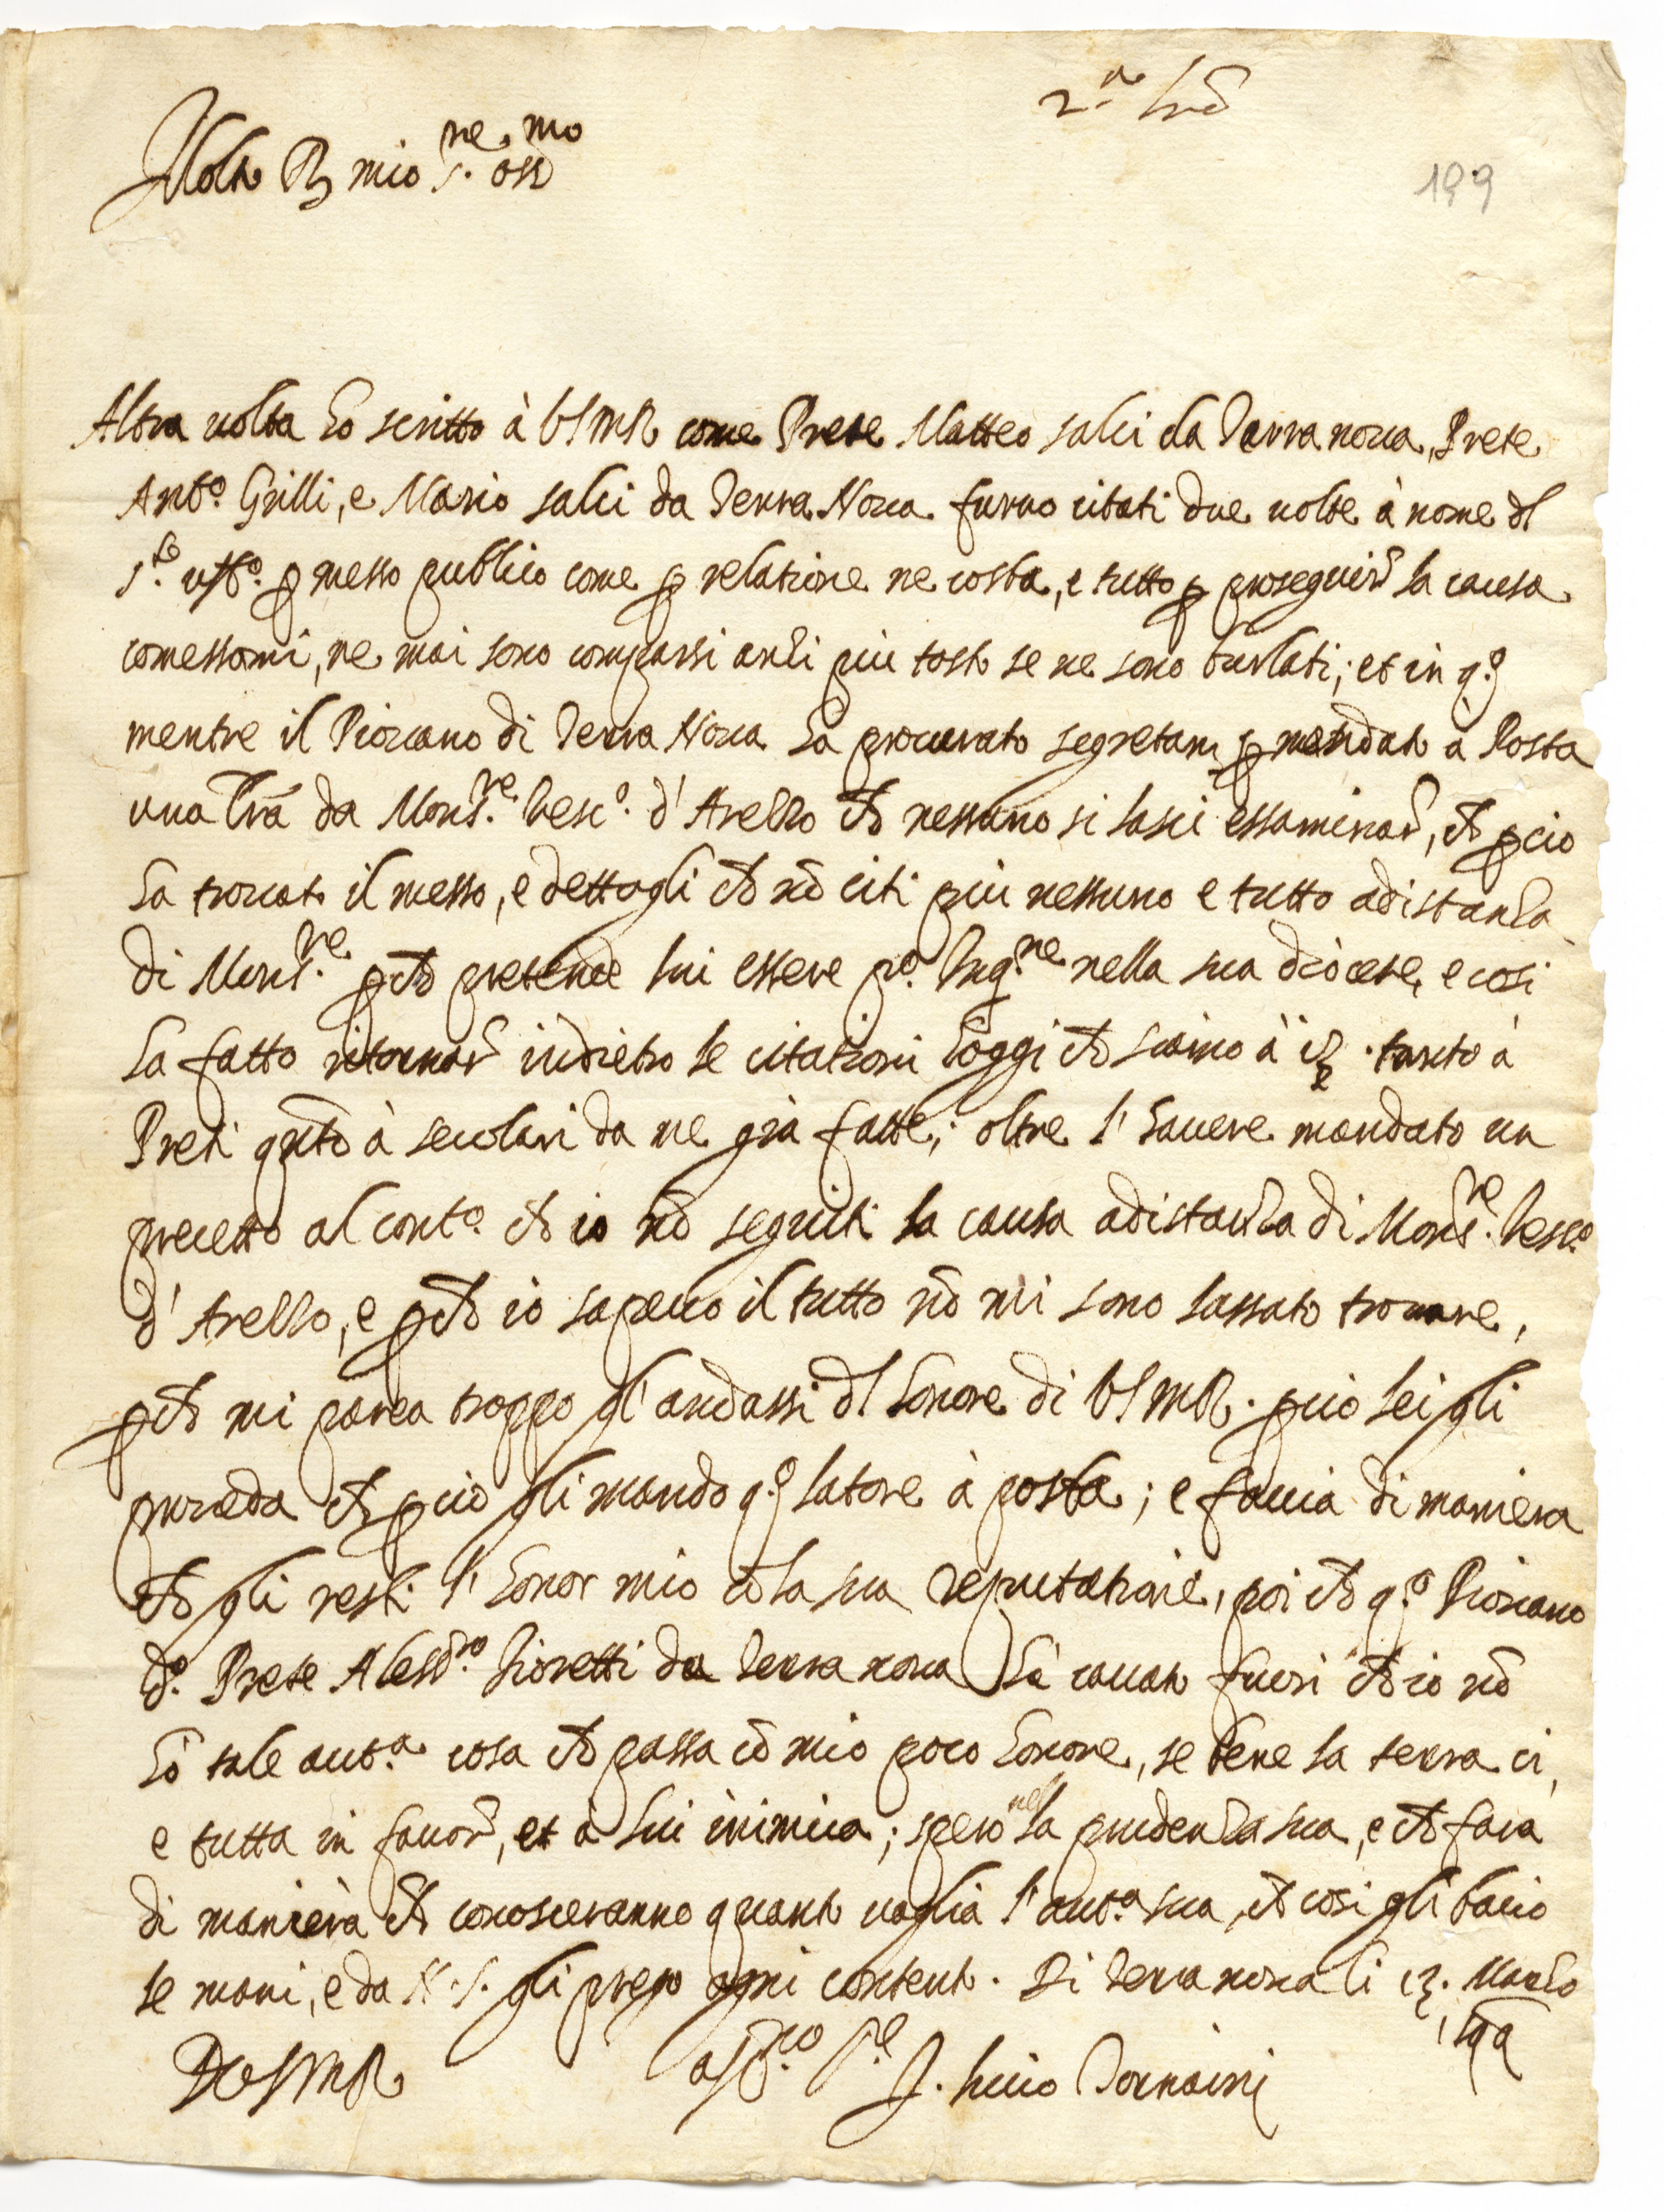 2.a
Molto R mio S.re oss.mo
199
Altra uolta ho scritto à VSMR come Prete Matteo salci da Terranoua, Prete
Ant.o Grilli, e Mario salci da Terra Noua furno citati due uolte à nome dl
S.to uff.o p messo publico come p relatione ne costa, e tutto p proseguir la causa
comessami, ne mai sono comparsi anzi piu tosto se ne sono burlati; et in q.o
mentre il Piouano di Terra Noua ha procurato segretam p mandato à Posta
una lrã da Mons.re Vesc.o d'Arezzo ch nessuno si lasci essaminar, ch pcio
ha trouato il messo, e dettogli ch nõ citi piu nessuno e tutto adistanza
di Mons.re pch pretende lui essere p.o Inq.re nella sua diocese, e cosi
ha fatto ritornar indietro le citationi hoggi ch siamo à 13 . tanto à
Preti qnto à secolari da me già fatte; oltre l'hauere mandato un
precetto al cont.o ch io nõ seguiti la causa adistanza di Mons.re Vesc.o
d'Arezzo, e pch io sapeuo il tutto nõ mi sono lassato trouare,
pch mi parea troppo gl'andassi dl honore di VSMR . pcio lei gli
proueda ch pcio gli mando q.o latore à posta; e faccia di maniera
ch gli resti l'honor mio cõ la sua reputatione, poi ch q.o Piouano
d.o Prete Aless.ro Fioretti da Terra noua hà cauato fuori ch io nõ
hò tale aut.a cosa ch passa cõ mio poco honore, se bene la terra ci
e tutta in fauor, et à lui inimica; spero nella prudenza sua, e ch fara
di manierà ch conosceranno quanto uaglia l'aut.a sua, ch cosi gli bacio
le mani, e da N.S. gli prego ogni contento . Di Terranoua li 13. Marzo
DVSMR
aff.mo S.re